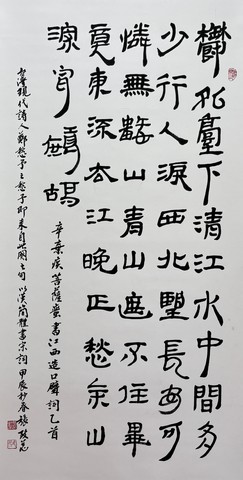 鬱孤臺下清江水中間多
少行人淚西北望長安可
憐無數青山遮不住畢
竟東流去江晚正愁余山
深聞鷓鴣
辛棄疾菩薩蠻書江西造口壁詞乙首
台灣現代詩人鄭愁予之愁予即來自此闋之句 以漢簡體書宋詞 甲辰杪春